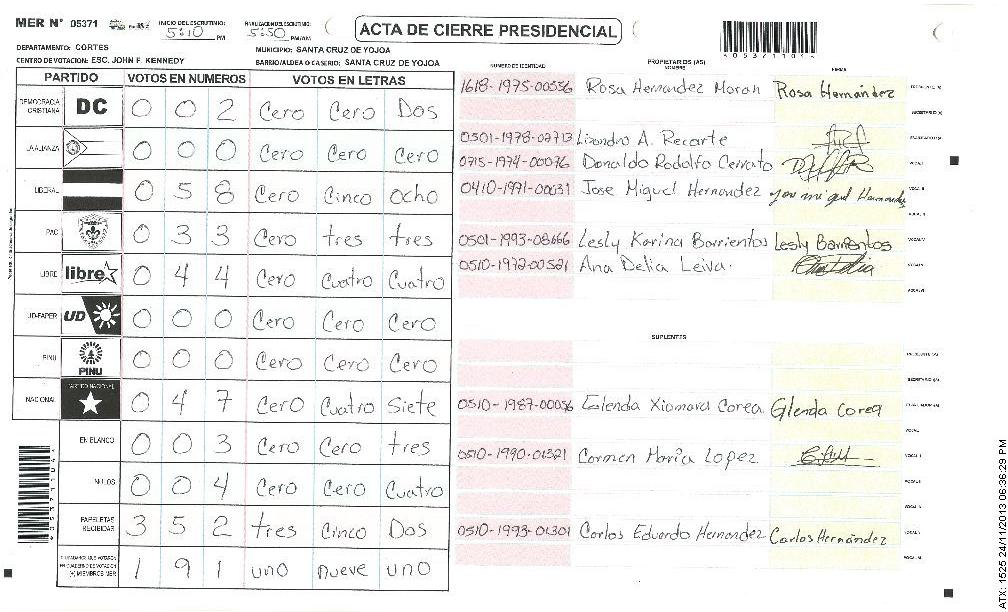 MER N° 05371
INICIO DEL ESCRUTINIO: 5:10 PM
FINALIZACION DEL ESCRUTINIO: 5:50 PM/AM
ACTA DE CIERRE PRESIDENCIAL
DEPARTAMENTO: CORTES
MUNICIPIO: SANTA CRUZ DE YOJOA
CENTRO DE VOTACION: ESC. JOHN F. KENNEDY
BARRIO/ALDEA O CASERIO: SANTA CRUZ DE YOJOA
PARTIDO VOTOS EN NUMEROS VOTOS EN LETRAS
DEMOCRACIA CRISTIANA DC 0 0 2 Cero Cero Dos
LA ALIANZA 0 0 0 Cero Cero Cero
LIBERAL 0 5 8 Cero Cinco Ocho
PAC 0 3 3 Cero tres tres
LIBRE libre 0 4 4 Cero Cuatro Cuatro
UD-FAPER UD 0 0 0 Cero Cero Cero
PINU PINU 0 0 0 Cero Cero Cero
NACIONAL PARTIDO NACIONAL 0 4 7 Cero Cuatro Siete
EN BLANCO 0 0 3 Cero Cero tres
NULOS 0 0 4 Cero Cero Cuatro
PAPELETAS RECIBIDAS 3 5 2 tres Cinco Dos
CIUDADANOS QUE VOTARON EN CUADERNO DE VOTACION (+) MIEMBROS MER 1 9 1 uno nueve uno
NUMERO DE IDENTIDAD PROPIETARIOS (AS) NOMBRE FIRMA
1618-1975-00336 Rosa Hernandez Moran Rosa Hernández PRESIDENTE (A)
SECRETARIO (A)
0501-1978-02713 Lisandro A. Recarte ESCRUTADOR (A)
0715-1974-00076 Donaldo Rodolfo Cerrato VOCAL I
0410-1971-00031 Jose Miguel Hernandez Jose miguel Hernandez VOCAL II
0501-1993-08666 Lesly Karina Barrientos Lesly Barrientos
0510-1972-00521 Ana Delia Leiva.
SUPLENTES
PRESIDENTE (A)
SECRETARIO (A)
0510-1987-00036 Glenda Xiomara Corea Glenda Corea ESCRUTADOR (A)
0510-1990-01321 Carmen Maria Lopez
0510-1993-01301 Carlos Eduardo Hernandez Carlos Hernández
ATX: 1525 24/11/2013 06:36:29 PM